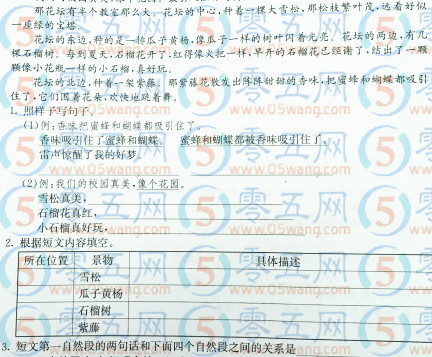 那花坛有半个教室那么大。花坛的中心,种着一棵大雪松,那松枝繁叶茂,远看好似
一座绿的宝塔。
花坛的东边,种的是一排瓜子黄杨,像瓜子一样的树叶闪着光亮。花坛的两边,有几
棵石榴树。每到夏天,石榴花开了,红得像火把一样,早开的石榴花已经谢了,结出了一颗
颗像小花瓶一样的小石榴,真好玩。
花坛的北边,种着一架紫藤。那紫藤花散发出阵阵甜甜的香味,把蜜蜂和蝴蝶都吸引
住了,它们围着花朵,欢快地跳着舞。
1. 照样子写句子。
(1)例:香味把蜜蜂和蝴蝶都吸引住了。
香味吸引住了蜜蜂和蝴蝶。 蜜蜂和蝴蝶都被香味吸引住了。
雷声惊醒了我的好梦。
(2)例:我们的校园真美,像个花园。
雪松真美,
石榴花真红,
小石榴真好玩,
2. 根据短文内容填空。
所在位置 景物 具体描述
雪松
瓜子黄杨
石榴树
紫藤
3. 短文第一自然段的两句话和下面四个自然段之间的关系是
零五网
www.05wang.com